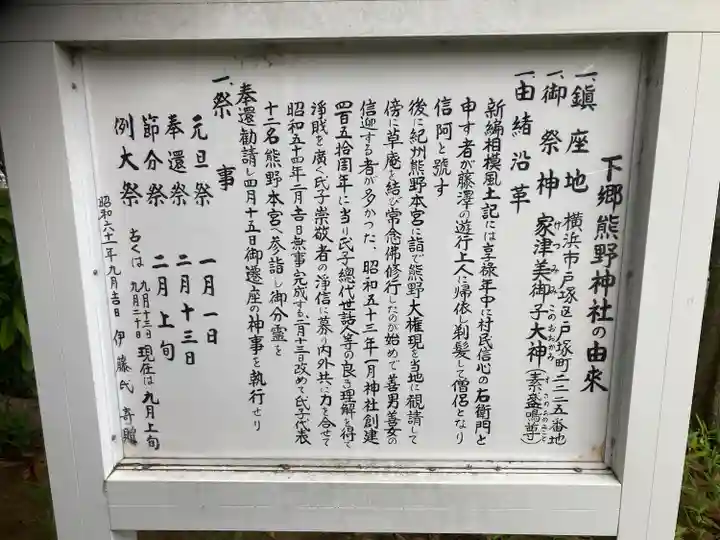 下郷熊野神社の由來
一、鎮座地 横浜市戸塚区戸塚町二二二五番地
一、御祭神 家津美御子大神(素盞嗚尊)
けつみみこのおおかみ すさのおのみこと
一、由緒沿革
新編相模風土記には享禄年中に村民信心の右衛門と
申す者が藤澤の遊行上人に帰依し剃髪して僧侶となり
信阿と號す
後に紀州熊野本宮に詣で熊野大権現を当地に観請して
傍に草庵を結び常念佛修行したのが始めで善男善女の
信迎する者が多かつた、昭和五十三年一月神社創建
四百五拾周年に当り氏子總代世話人等の良き理解を得て
淨財を廣く氏子崇敬者の淨信に募り内外共に力を合せて
昭和五十四年二月吉日無事完成する二月十三日改めて氏子代表
十二名熊野本宮へ参詣し御分霊を
奉還勧請し四月十五日御遷座の神事を執行せり
一、祭事
元旦祭 一月一日
奉還祭 二月十三日
節分祭 二月上旬
例大祭 古くは 九月十三日 九月二十日 現在は 九月上旬
昭和六十一年九月吉日 伊藤氏 寄贈